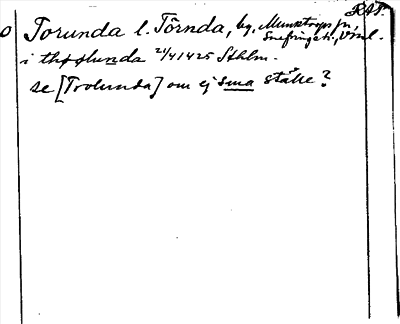 RAP.
o Torunda l. Törnda, by, Munktorps sn,
Snefringe h., Vml.
i thorslunda 21/4 1425 Sthlm.
se [Trolunda] om ej sma ställe?